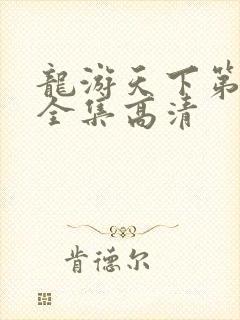 龍游天下第
全集高清
肯德尔